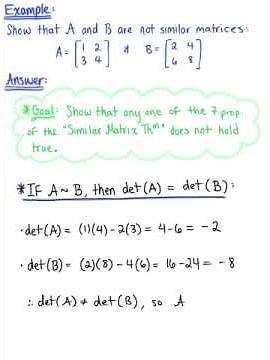 Example:
Show that A and B are not similar matrices:
A = [1 2
3 4] & B = [2 4
6 8]
Answer:
*Goal: Show that any one of the 7 prop.
of the "Similar Matrix Thm" does not hold
true.
*IF A ~ B, then det(A) = det(B):
· det(A) = (1)(4) - 2(3) = 4 - 6 = -2
· det(B) = (2)(8) - 4(6) = 16 - 24 = -8
∴ det(A) ≠ det(B), so A